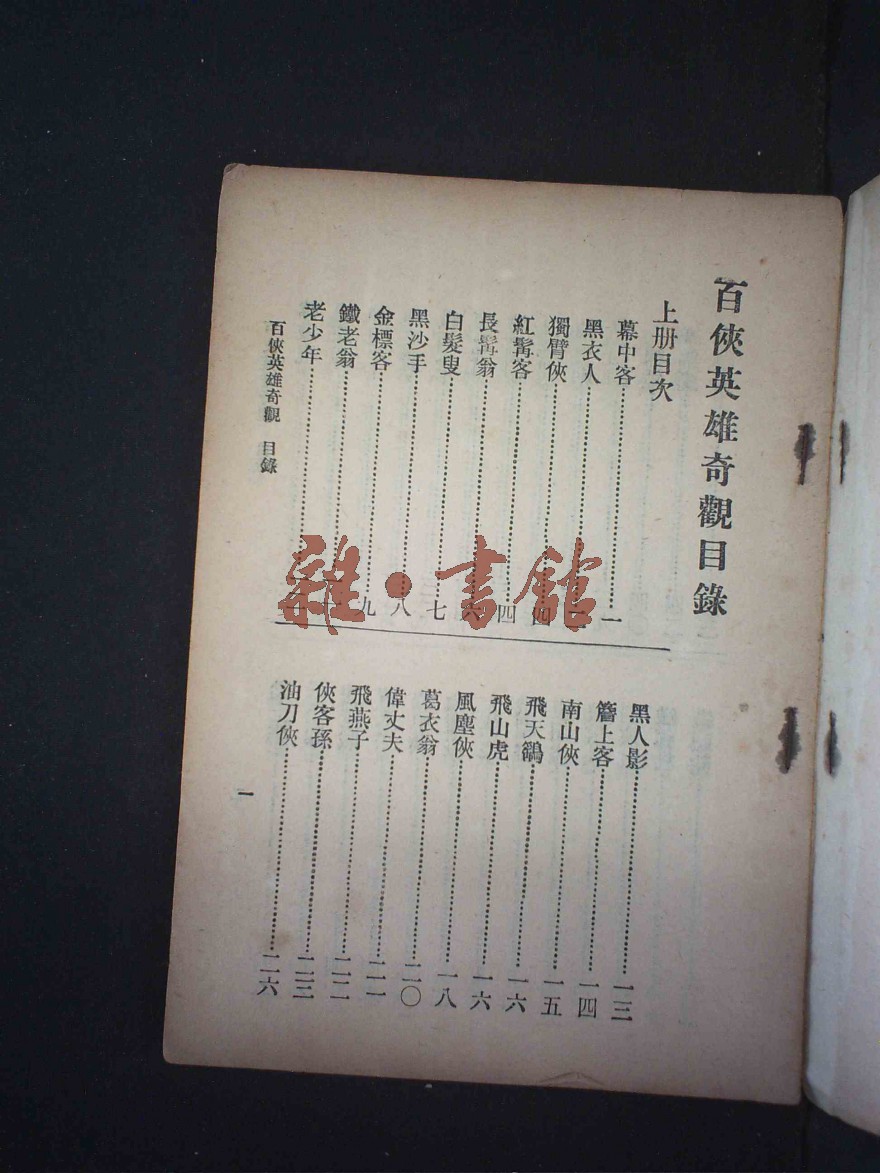 百俠英雄奇觀目錄
上册目次
幕中客…………一
黑衣人…………
獨臂俠…………四
紅髯客…………四
長髯翁…………六
白髮叟…………七
黑沙手…………八
金標客…………九
鐵老翁…………
老少年…………
黑人影…………一三
簷上客…………一四
南山俠…………一五
飛天鷂…………一六
飛山虎…………一六
風塵俠…………一八
葛衣翁…………二〇
偉丈夫…………二一
飛燕子…………二二
俠客孫…………二三
油刀俠…………二六
百俠英雄奇觀 目錄
一
雜·書館